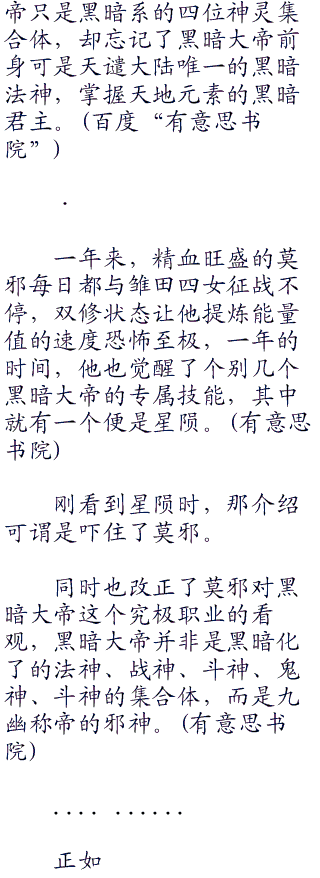 帝只是黑暗系的四位神灵集
合体，却忘记了黑暗大帝前
身可是天谴大陆唯一的黑暗
法神，掌握天地元素的黑暗
君主。(百度“有意思书
院”)
.
一年来，精血旺盛的莫
邪每日都与雏田四女征战不
停，双修状态让他提炼能量
值的速度恐怖至极，一年的
时间，他也觉醒了个别几个
黑暗大帝的专属技能，其中
就有一个便是星陨。(有意思
书院)
刚看到星陨时，那介绍
可谓是吓住了莫邪。
同时也改正了莫邪对黑
暗大帝这个究极职业的看
观，黑暗大帝并非是黑暗化
了的法神、战神、斗神、鬼
神、斗神的集合体，而是九
幽称帝的邪神。(有意思书
院)
.... ......
正如